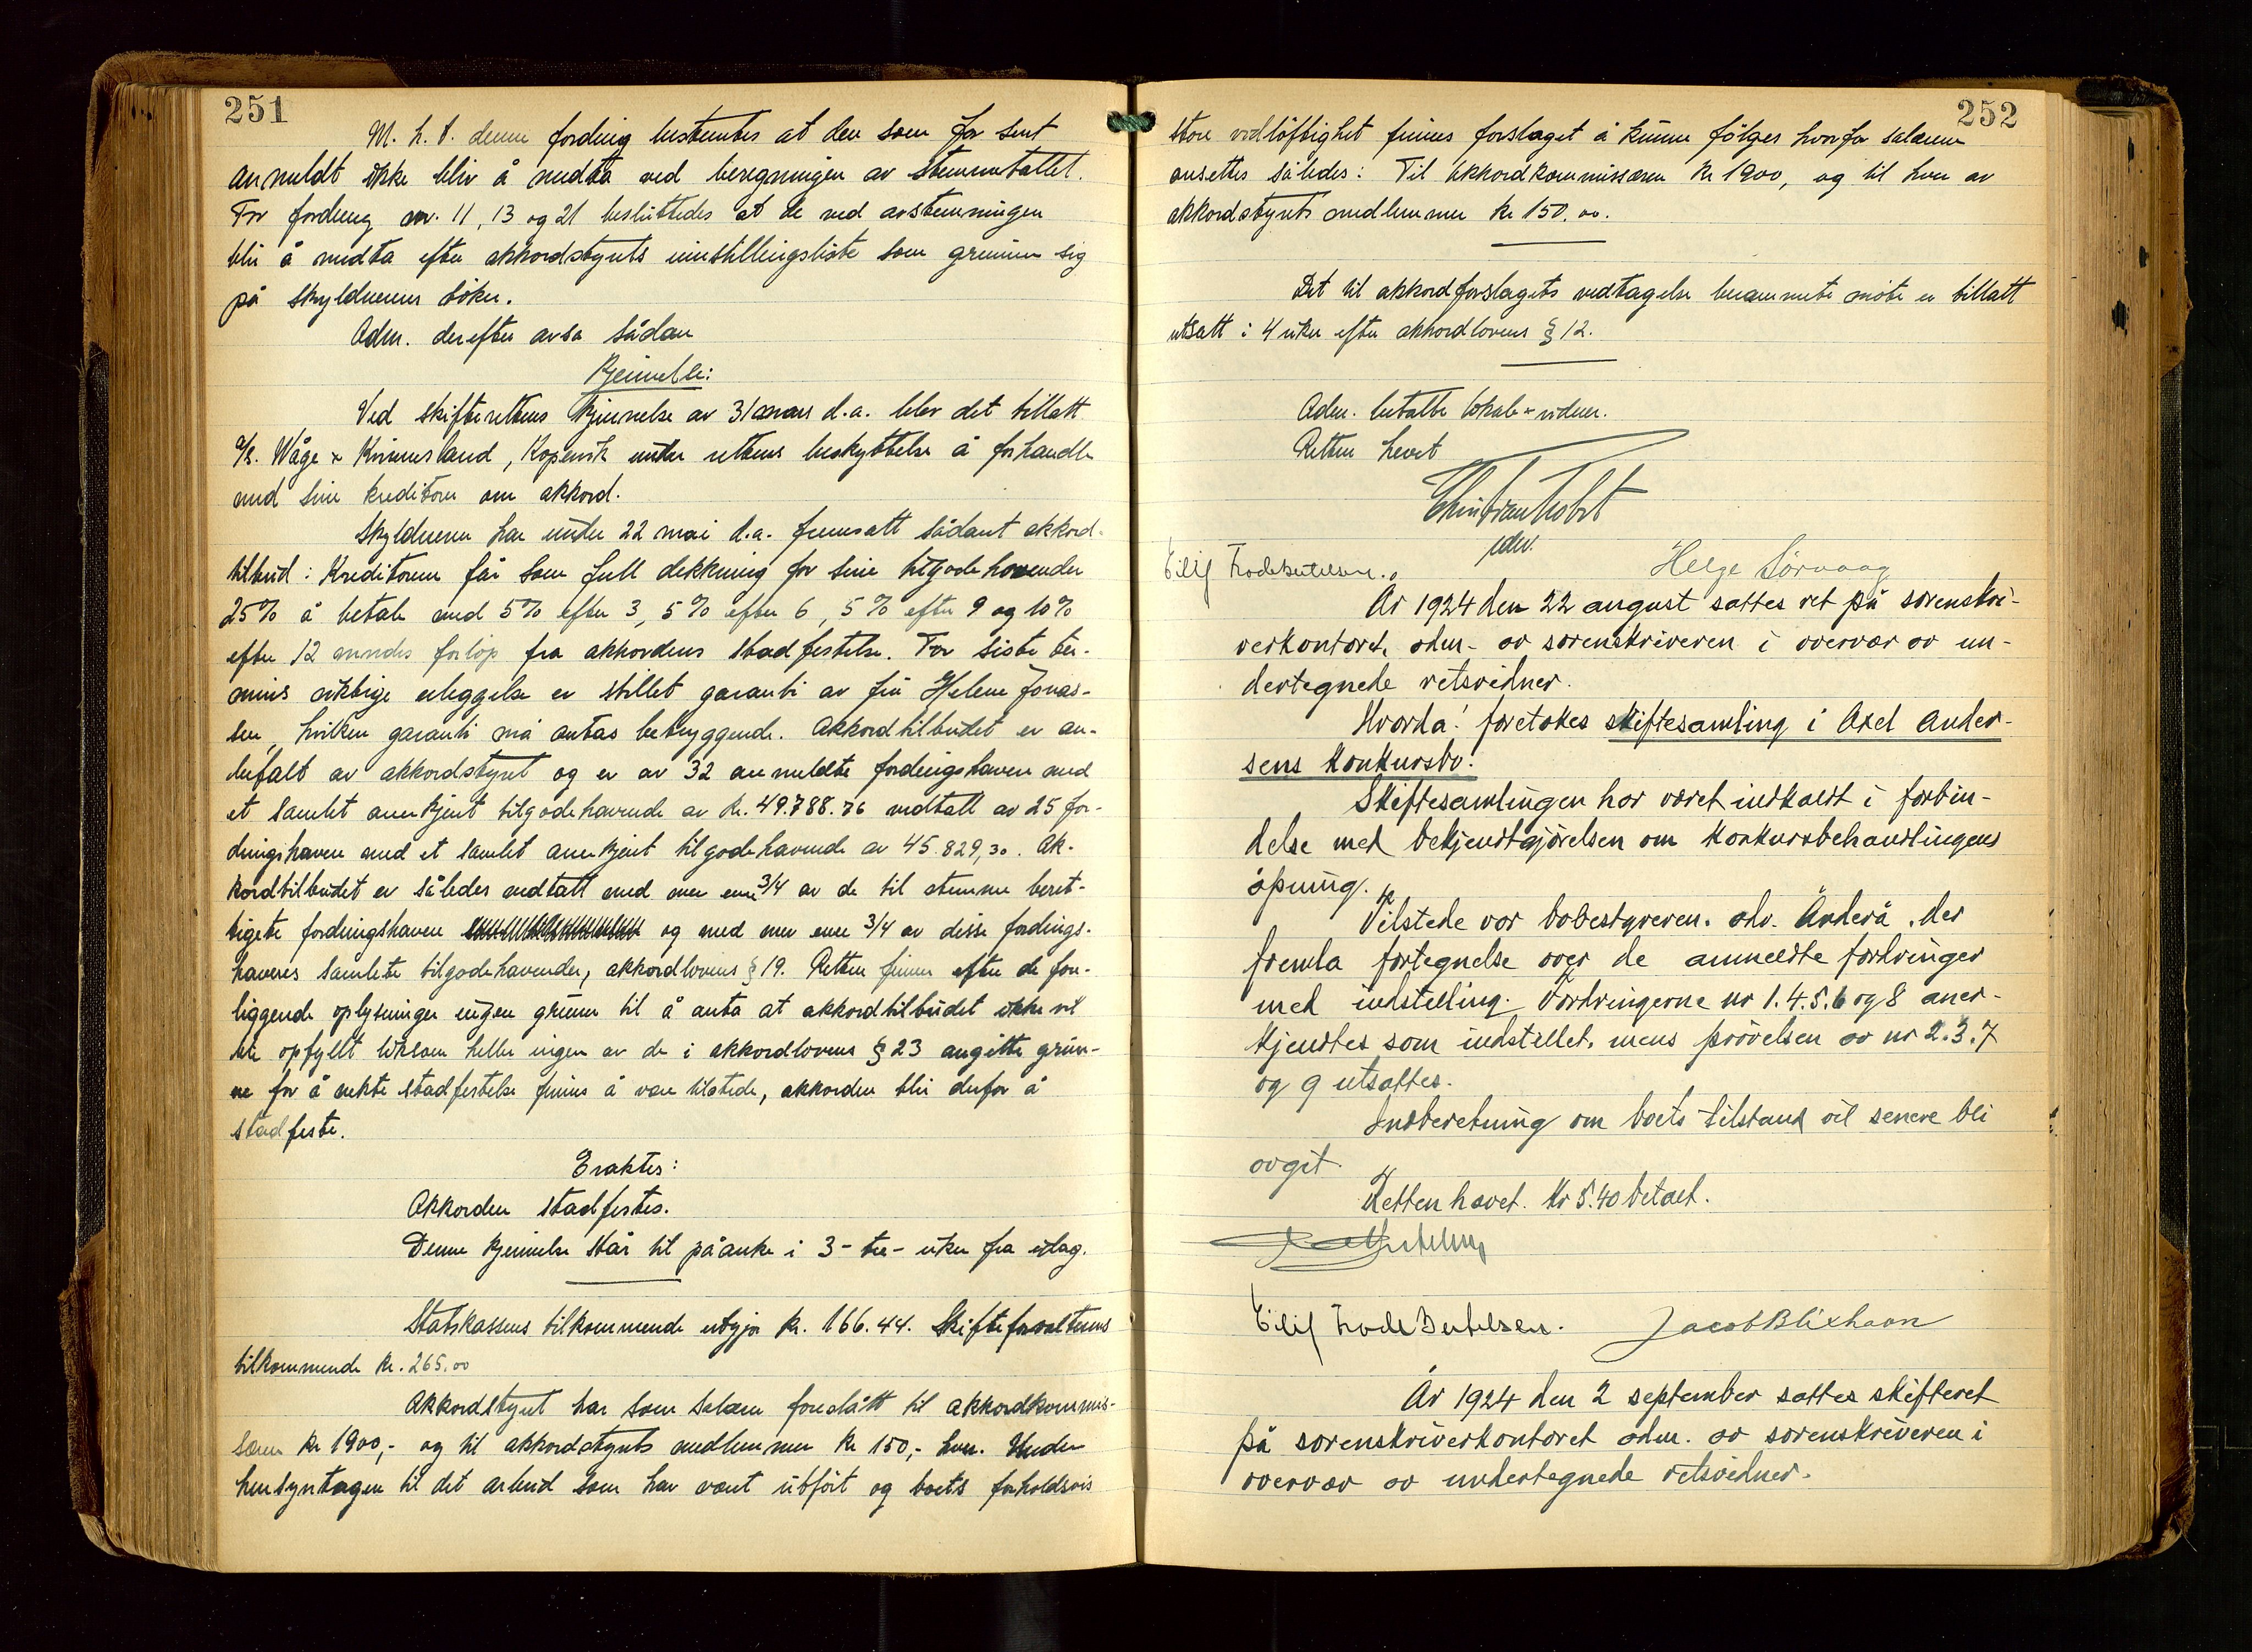 251
M. h. t. denne fording bestemtes at den som for sent
anmeldt ikke bliv å medta ved beregningen av stemmetallet.
For fording nr. 11, 13 og 21 besluttedes at de ved avstemningen
blir å medta efter akkordstyrets innstillingsliste som grunner sig
på skyldnerens bøker.
Adm. derefter avsa sådan
Kjennelse:
Ved skifterettens kjennelse av 31 mars d.a. blev det tillatt
A/S. Wåge & Kvinnesland, Kopervik under rettens beskyttelse å forhandle
med sine kreditorer om akkord.
Skyldneren har under 22 mai d.a. fremsatt sådant akkord-
tilbud: Kreditorene får som full dekkning for sine tilgodehavender
25% å betale med 5% efter 3, 5% efter 6, 5% efter 9 og 10%
efter 12 mndrs forløp fra akkordens stadfestelse. For siste ter-
mins riktige erleggelse er stillet garanti av frú Helene Jonas-
sen, hvilken garanti må antas betryggende. Akkordtilbudet er an-
befalt av akkordstyret og er av 32 anmeldte fordingshavere med
et samlet anerkjent tilgodehavende av kr. 49.788.76 vedtatt av 25 for-
dingshavere med et samlet anerkjent tilgodehavende av 45.829,30. Ak-
kordtilbudet er således vedtatt med mer enn 3/4 av de til stemme beret-
tigete fordingshavere og med mer enn 3/4 av disse fordings-
haveres samlete tilgodehavender, akkordlovens § 19. Retten finner efter de fore-
liggende oplysninger ingen grunn til å anta at akkordtilbudet ikke vil
bli opfyllt likesom heller ingen av de i akkordlovens § 23 angitte grun-
ne for å nekte stadfestelse finnes å være tilstede, akkorden blir derfor å
stadfeste.
Eraktes:
Akkorden stadfestes.
Denne kjennelse står til påanke i 3 - tre - uker fra idag.
Statskassens tilkommende utgjør kr. 166.44. Skifteforvalterens
tilkommende kr. 265.00
Akkordstyret har som salær foreslått til akkordkommis-
særen kr 1900,- og til akkordstyrets medlemmer kr 150,- hver. Under
hensyntagen til det arbeid som har vært utført og boets forholdsvis
252
store vidtløftighet finnes forslaget å kunne følges hvorfor salærene
ansettes således: Til akkordkommissæren kr 1900, og til hver av
akkordstyrets medlemmer kr 150.00.
Det til akkordforslagets vedtagelse berammete møte er tillatt
utsatt i 4 uker efter akkordlovens § 12.
Adm. betalte lokale & vidner.
Retten hevet
Eilif Trode Bertelsen. Helge Sørvaag
År 1924 den 22 august sattes ret på sorenskri-
verkontoret, adm. av sorenskriveren i overvær av un-
dertegnede retsvidner.
Hvorda! foretokes skiftesamling i Axel Ander-
sens konkursbo.
Skiftesamlingen har været indkaldt i forbin-
delse med bekjendtgjørelsen om konkursbehandlingens
åpning.
Tilstede var bobestyreren. adv. Anderå, der
fremla fortegnelse over de anmeldte fordringer
med indstilling. Fordringerne nr 1.4.5.6 og 8 aner-
kjendtes som indstillet, mens prøvelsen av nr 2.3.7
og 9 utsattes.
Indberetning om boets tilstand vil senere bli
avgit.
Retten hævet. Kr 5.40 betalt.
Eilif Trode Bertelsen. Jacob Blixhavn
År 1924 den 2 september sattes skifteret
på sorenskriverkontoret adm. av sorenskriveren i
overvær av undertegnede retsvidner.